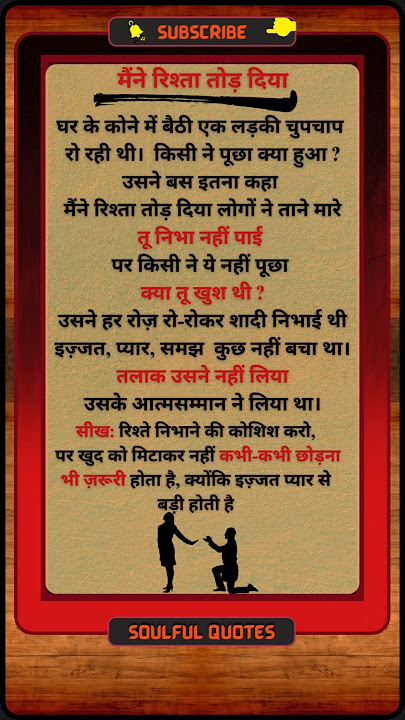 SUBSCRIBE
मैंने रिश्ता तोड़ दिया
घर के कोने में बैठी एक लड़की चुपचाप
रो रही थी। किसी ने पूछा क्या हुआ ?
उसने बस इतना कहा
मैंने रिश्ता तोड़ दिया लोगों ने ताने मारे
तू निभा नहीं पाई
पर किसी ने ये नहीं पूछा
क्या तू खुश थी ?
उसने हर रोज़ रो-रोकर शादी निभाई थी
इज़्जत, प्यार, समझ कुछ नहीं बचा था।
तलाक उसने नहीं लिया
उसके आत्मसम्मान ने लिया था।
सीख: रिश्ते निभाने की कोशिश करो,
पर खुद को मिटाकर नहीं कभी-कभी छोड़ना
भी ज़रूरी होता है, क्योंकि इज़्जत प्यार से
बड़ी होती है
SOULFUL QUOTES